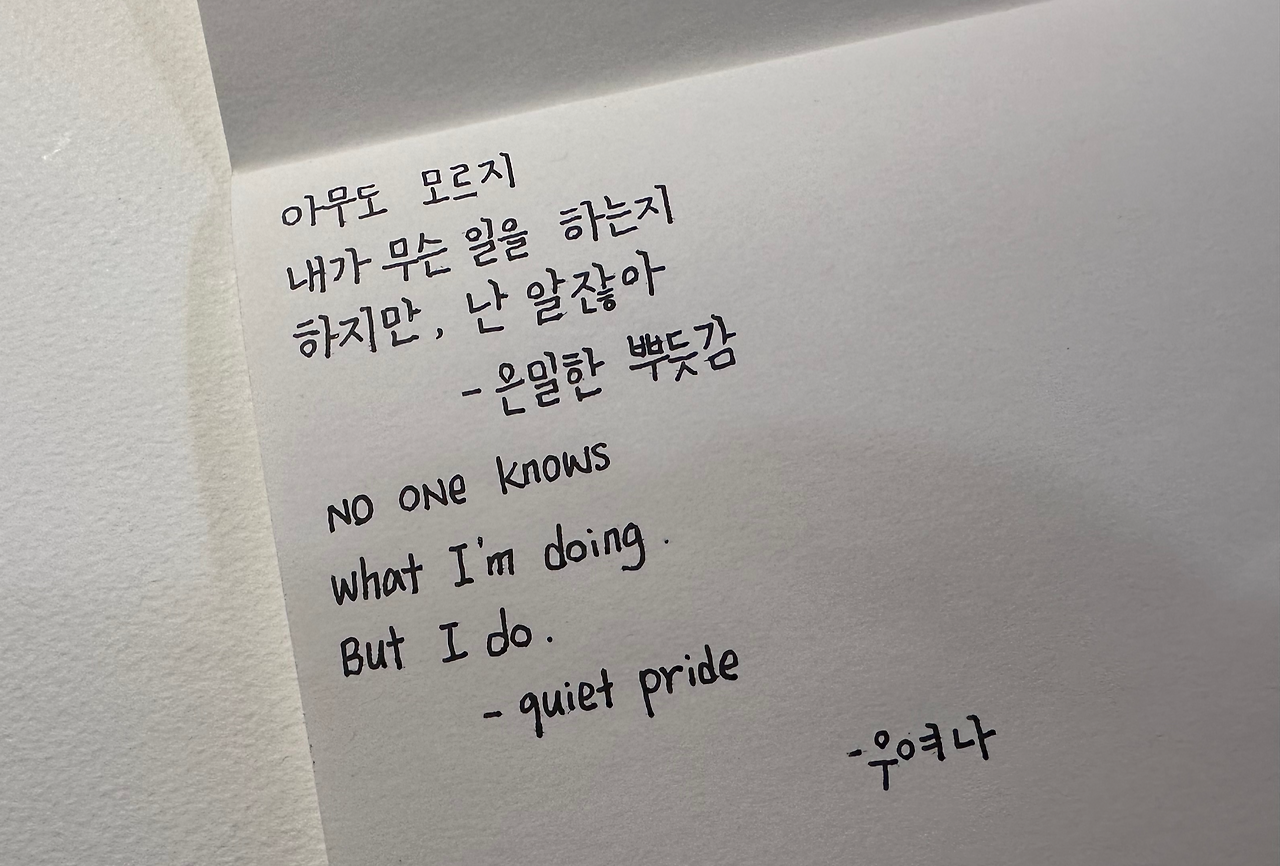 아무도 모르지
내가 무슨 일을 하는지
하지만, 난 알잖아
- 은밀한 뿌듯감
NO ONe knows
what I'm doing.
But I do.
- quiet pride
- 우여나